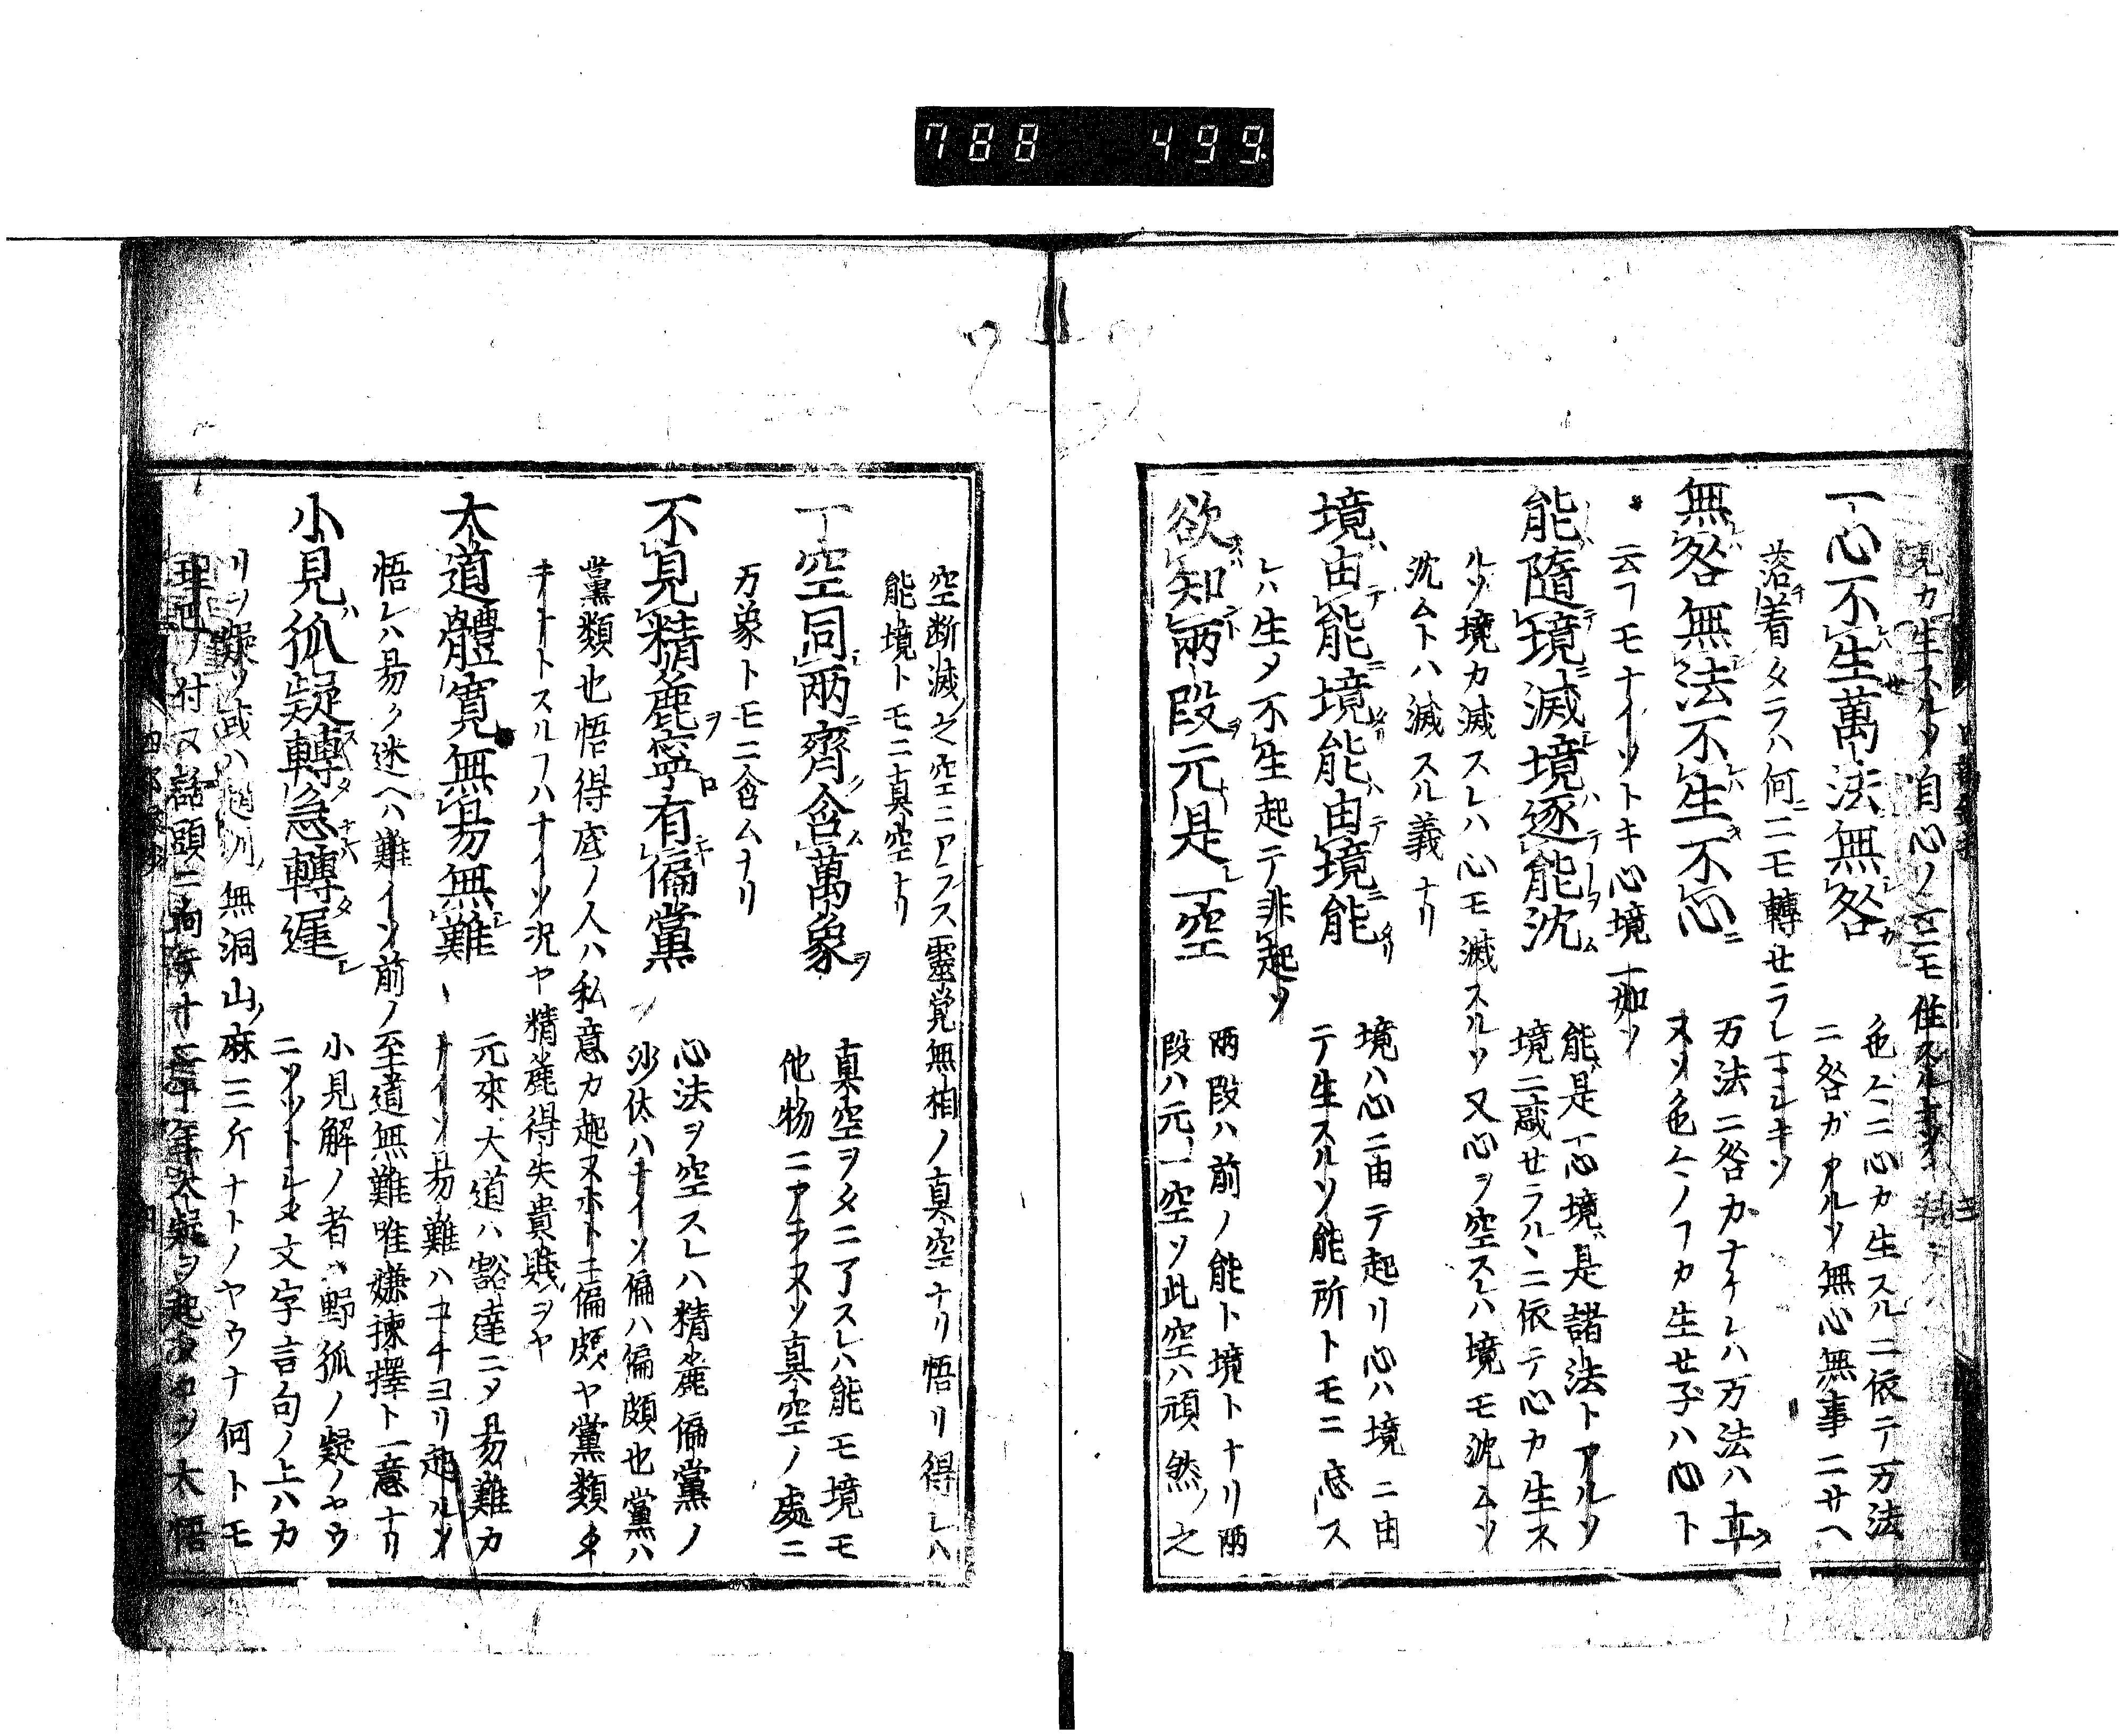 788 499
見カ生スルタ自心ノ二モ住スル事ソ
一心不生萬法無咎
色々ニ心カ生スルニ依テ万法
ニ咎ガアルソ無心無事ニサヘ
落着タラハ何ニモ轉セラレマシキソ
無咎無法不生不心
万法ニ咎カナケレハ万法ハ立
ヌソ色々ノフカ生セ子ハ心ト
云フモナイソトキ心境一如ソ
能隨境滅境逐能沈
能是一心境是諸法トアルソ
境ニ礙セラルヽニ依テ心カ生ス
ルソ境カ滅スレハ心モ滅スルソ又心ヲ空スレハ境モ沈ムソ
沈ムトハ滅スル義ナリ
境由能境能由境能
境ハ心ニ由テ起リ心ハ境ニ由
テ生スルソ能所トモニ忘ス
レハ生タ不生起テ非起ソ
欲知兩段元是一空
兩段ハ前ノ能ト境トナリ兩
段ハ元一空ソ此空ハ頑然ノ之
空断滅之空ニアラス靈覚無相ノ真空ナリ悟リ得レハ
能境トモニ真空ナリ
一空同兩齊含萬象
真空ヲタニ了スレハ能モ境モ
他物ニアラヌソ真空ノ處ニ
万象トモニ含ムナリ
不見精麁寧有偏黨
心法ヲ空スレハ精麁偏黨ノ
沙汰ハナイソ偏ハ偏頗也黨ハ
黨類也悟得底ノ人ハ私意カ起ヌホトニ偏頗ヤ黨類ハ
ナイトスルフハナイソ況ヤ精麁得失貴賤ヲヤ
大道體寛無易無難
元來大道ハ豁達ニタ易難カ
ナイソ易難ハ コチヨリ起ルソ
悟レハ易ク迷ヘハ難イソ前ノ至道無難唯嫌揀擇ト一意ナリ
小見狐疑轉急轉遲
小見解ノ者ハ野狐ノ疑ノヤウ
ニソツトシタ文字言句ノ上ハカ
リヲ疑ソ或ハ趙州無洞山麻三斤ナトノヤウナ何トモ
理也ノ付ヌ話頭ニ向テ十年二十年大疑ヲ起タカソ大悟